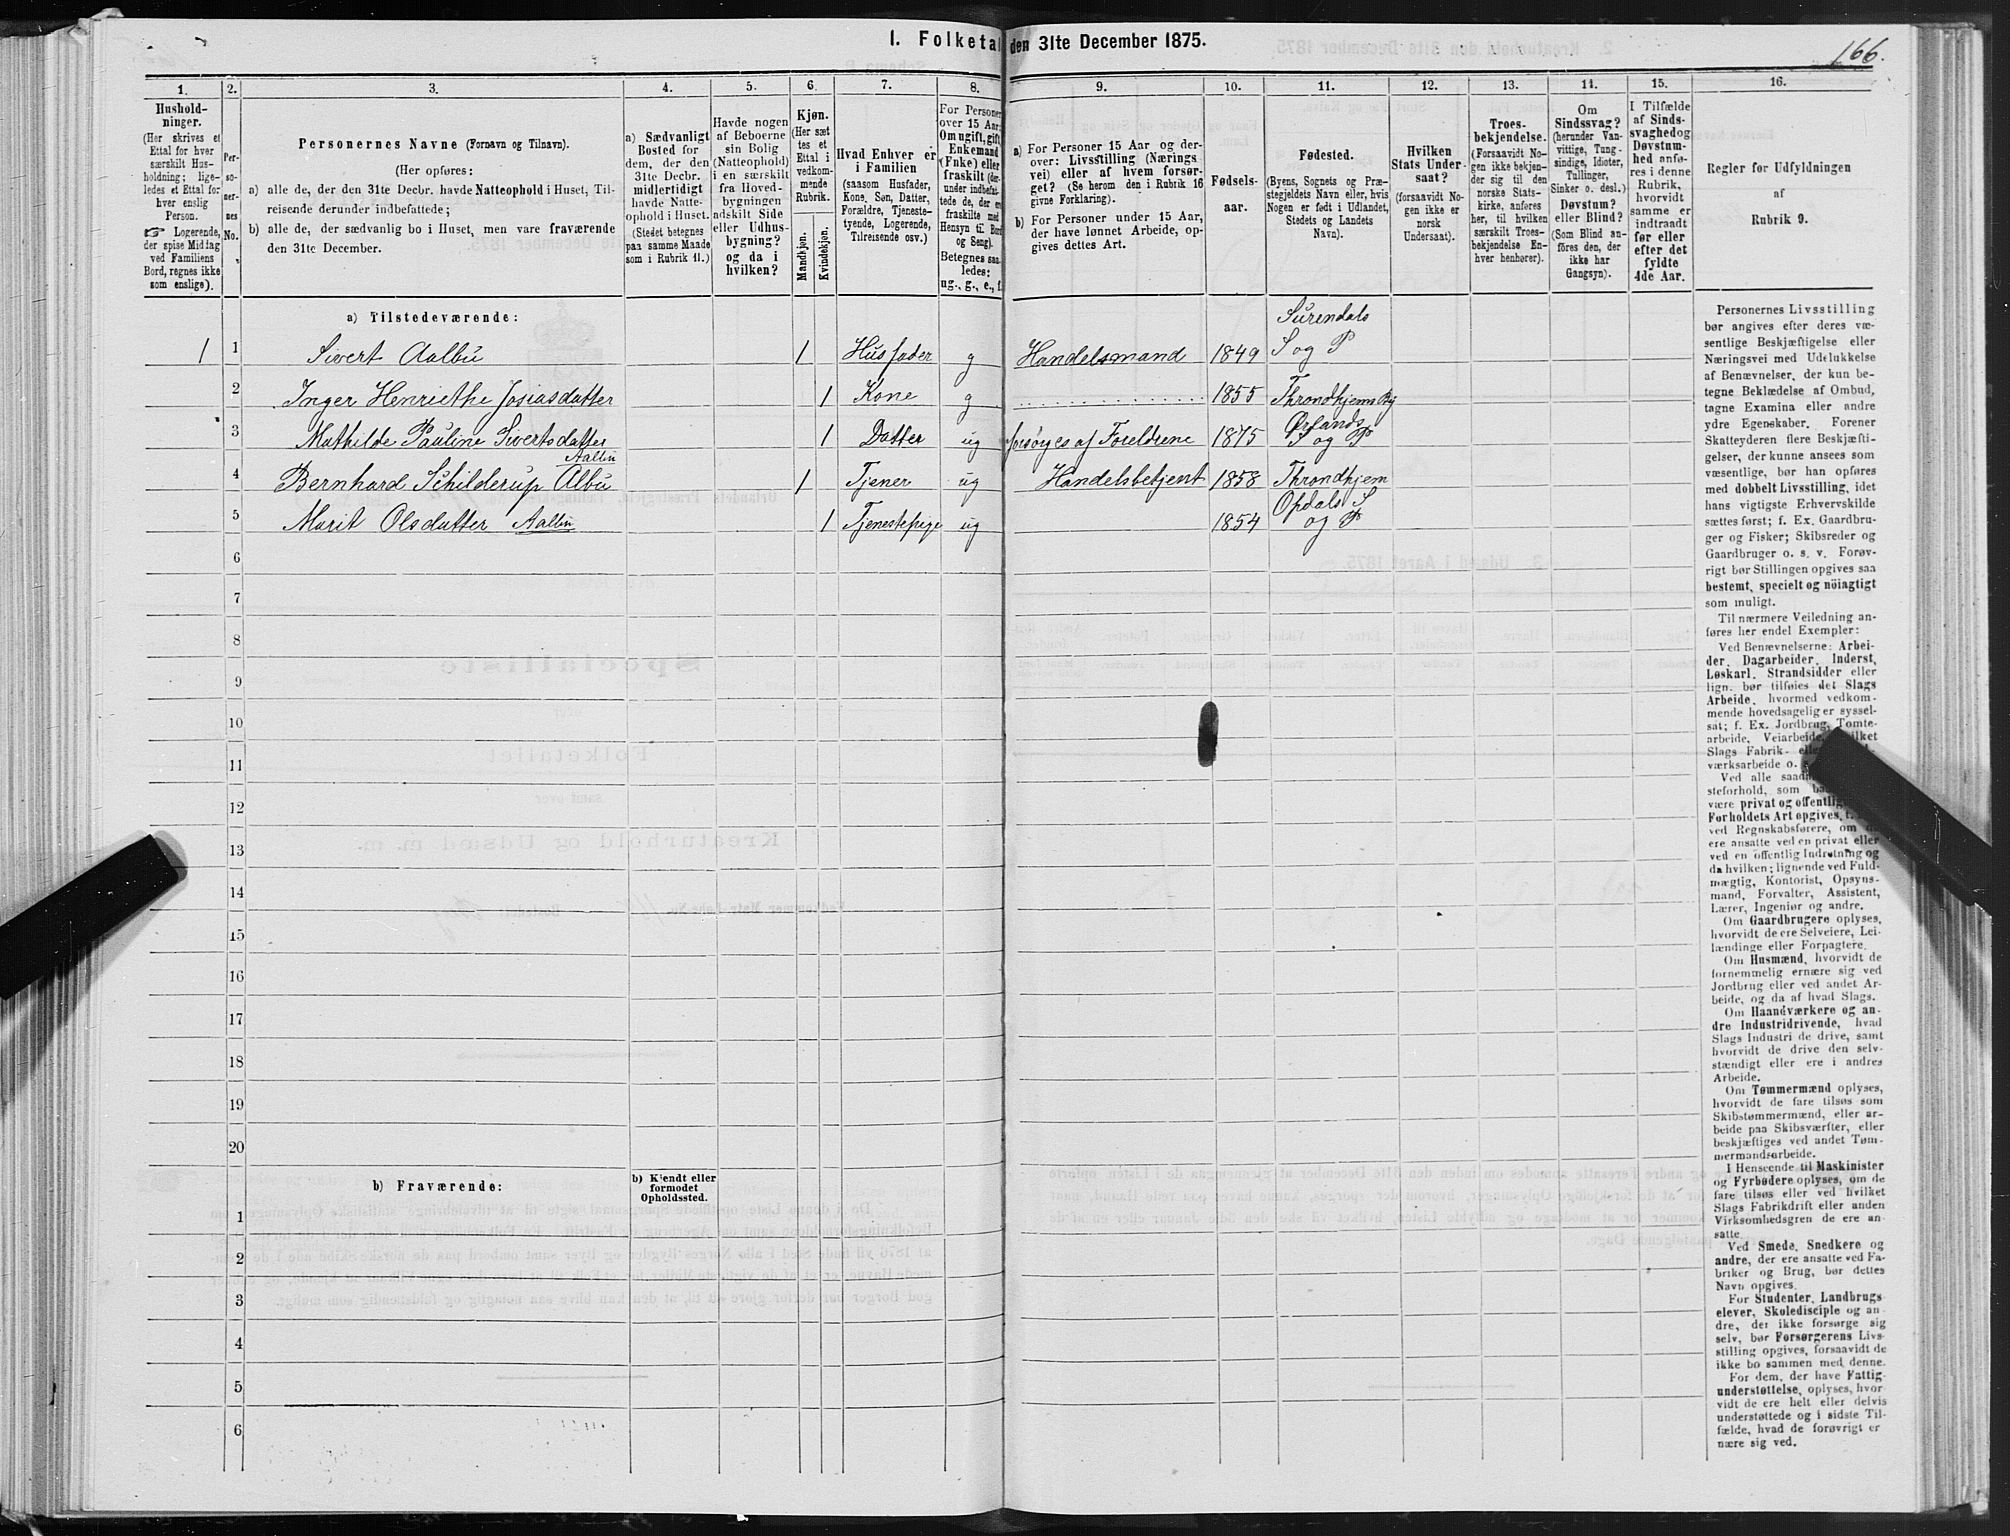 1. Folketal den 31te December 1875.
166.
1. 2. 3. 4. 5. 6. 7. 8. 9. 10. 11. 12. 13. 14. 15. 16.
Hushold-
ninger.
(Her skrives et
Ettal for hver
særskilt Hus-
holdning; lige-
ledes et Ettal for
hver enslig
Person.
☞ Logerende,
der spise Middag
ved Familiens
Bord, regnes ikke
som enslige).
Per-
so-
ner-
nes
No.
Personernes Navne (Fornavn og Tilnavn).
(Her opføres:
a) alle de, der den 31te Decbr. havde Natteophold i Huset, Til-
reisende derunder indbefattede;
b) alle de, der sædvanlig bo i Huset, men vare fraværende
den 31te December.
a) Sædvanligt
Bosted for
dem, der den
31te Decbr.
midlertidigt
havde Natte-
ophold i Huset.
(Stedet betegnes
paa samme Maade
som i Rubrik 11.)
Havde nogen
af Beboerne
sin Bolig
(Natteophold)
i en særskilt
fra Hoved-
bygningen
adskilt Side
eller Udhus-
bygning?
og da i
hvilken?
Kjøn.
(Her sæt-
tes et
Ettal i
vedkom-
mende
Rubrik.
Mandkjøn.
Kvindekjøn.
Hvad Enhver er
i Familien
(saasom Husfader,
Kone, Søn, Datter,
Forældre, Tjeneste-
tyende, Logerende,
Tilreisende osv.)
For Personer
over 15 Aar:
Om ugift, gift,
Enkemand
(Enke) eller
fraskilt (der-
under indbefat-
tede de, der ere
fraskilte med
Hensyn til Bord
og Seng).
Betegnes saa-
ledes:
ug., g., e., f.
a) For Personer 15 Aar og der-
over: Livsstilling (Nærings-
vei) eller af hvem forsør-
get? (Se herom den i Rubrik 16
givne Forklaring).
b) For Personer under 15 Aar,
der have lønnet Arbeide, op-
gives dettes Art.
Fødsels-
aar.
Fødested.
(Byens, Sognets og Præ-
stegjeldets Navn eller, hvis
Nogen er født i Udlandet,
Stedets og Landets
Navn).
Hvilken
Stats Under-
saat?
(forsaavidt No-
gen ikke er
norsk
Undersaat).
Troes-
bekjendelse.
(Forsaavidt No-
gen ikke bekjen-
der sig til den
norske Stats-
kirke, anføres
her, til hvilken
særskilt Troes-
bekjendelse En-
hver henhører).
Om
Sindssvag?
(herunder Van-
vittige, Tung-
sindige, Idioter,
Tullinger,
Sinker o. desl.)
Døvstum?
eller Blind?
(Som Blind an-
føres den, der
ikke har
Gangsyn).
I Tilfælde
af Sinds-
svaghed og
Døvstum-
hed anfø-
res i denne
Rubrik,
hvorvidt
samme er
indtraadt
før eller
efter det
fyldte
4de Aar.
Regler for Udfyldningen
af
Rubrik 9.
a) Tilstedeværende:
1 1 Sivert Aalbu 1 Husfader g Handelsmand 1849 Surendals S og P
2 Inger Henriethe Josiasdatter 1 Kone g 1855 Throndhjems By
3 Mathilde Pauline Sivertsdatter Aalbu 1 Datter ug forsørges af Foreldrene 1875 Ørlands S og P
4 Bernhard Schilderup Albu 1 Tjener ug Handelsbetjent 1858 Throndhjem
5 Marit Olsdatter Aalbu 1 Tjenestepige ug 1854 Opdals S og P
6
7
8
9
10
11
12
13
14
15
16
17
18
19
20
b) Fraværende:
b) Kjendt eller
formodet
Opholdssted.
1
2
3
4
5
6
Personernes Livsstilling
bør angives efter deres væ-
sentlige Beskjæftigelse eller
Næringsvei med Udelukkelse
af Benævnelser, der kun be-
tegne Beklædelse af Ombud,
tagne Examina eller andre
ydre Egenskaber. Forener
Skatteyderen flere Beskjæfti-
gelser, der kunne ansees som
væsentlige, bør han opføres
med dobbelt Livsstilling, idet
hans vigtigste Erhvervskilde
sættes først; f. Ex. Gaardbru-
ger og Fisker; Skibsreder og
Gaardbruger o. s. v. Forøv-
rigt bør Stillingen opgives saa
bestemt, specielt og nöiagtigt
som muligt.
Til nærmere Veiledning an-
føres her endel Exempler:
Ved Benævnelserne: Arbei-
der, Dagarbeider, Inderst,
Løskarl, Strandsidder eller
lign. bør tilføies det Slags
Arbeide, hvormed vedkom-
mende hovedsagelig er syssel-
sat; f. Ex. Jordbrug, Tomte-
arbeide, Veiarbeide,
Slags Fabrik-
værksarbeide o.
Ved alle
steforhold, som
være privat og offentlig
Forholdets Art opgives,
ved Regnskabsførere, om
ere ansatte ved en privat eller
ved en offentlig Indretning og
da hvilken; lignende ved Fuld-
mægtig, Kontorist, Opsyns-
mand, Forvalter, Assistent,
Lærer, Ingeniør og andre.
Om Gaardbrugere oplyses,
hvorvidt de ere Selveiere, Lei-
lændinge eller Forpagtere.
Om Husmænd, hvorvidt de
fornemmelig ernære sig ved
Jordbrug eller ved andet Ar-
beide, og da af hvad Slags.
Om Haandværkere og an-
dre Industridrivende, hvad
Slags Industri de drive, samt
hvorvidt de drive den selv-
stændigt eller ere i andres
Arbeide.
Om Tømmermænd oplyses,
hvorvidt de fare tilsøs som
Skibstømmermænd, eller ar-
beide paa Skibsværfter, eller
beskjæftiges ved andet Tøm-
mermandsarbeide.
I Henseende til Maskinister
og Fyrbødere oplyses, om de
fare tilsøs eller ved hvilket
Slags Fabrikdrift eller anden
Virksomhedsgren de ere an-
satte.
Ved Smede, Snedkere og
andre, der ere ansatte ved Fa-
briker og Brug, bør dettes
Navn opgives.
For Studenter, Landbrugs-
elever, Skoledisciple og an-
dre, der ikke forsørge sig
selv, bør Forsørgerens Livs-
stilling opgives, forsaavidt de
ikke bo sammen med denne.
For dem, der have Fattig-
understøttelse, oplyses, hvor-
vidt de ere helt eller delvis
understøttede og i sidste Til-
fælde, hvad de forøvrigt er-
nære sig ved.